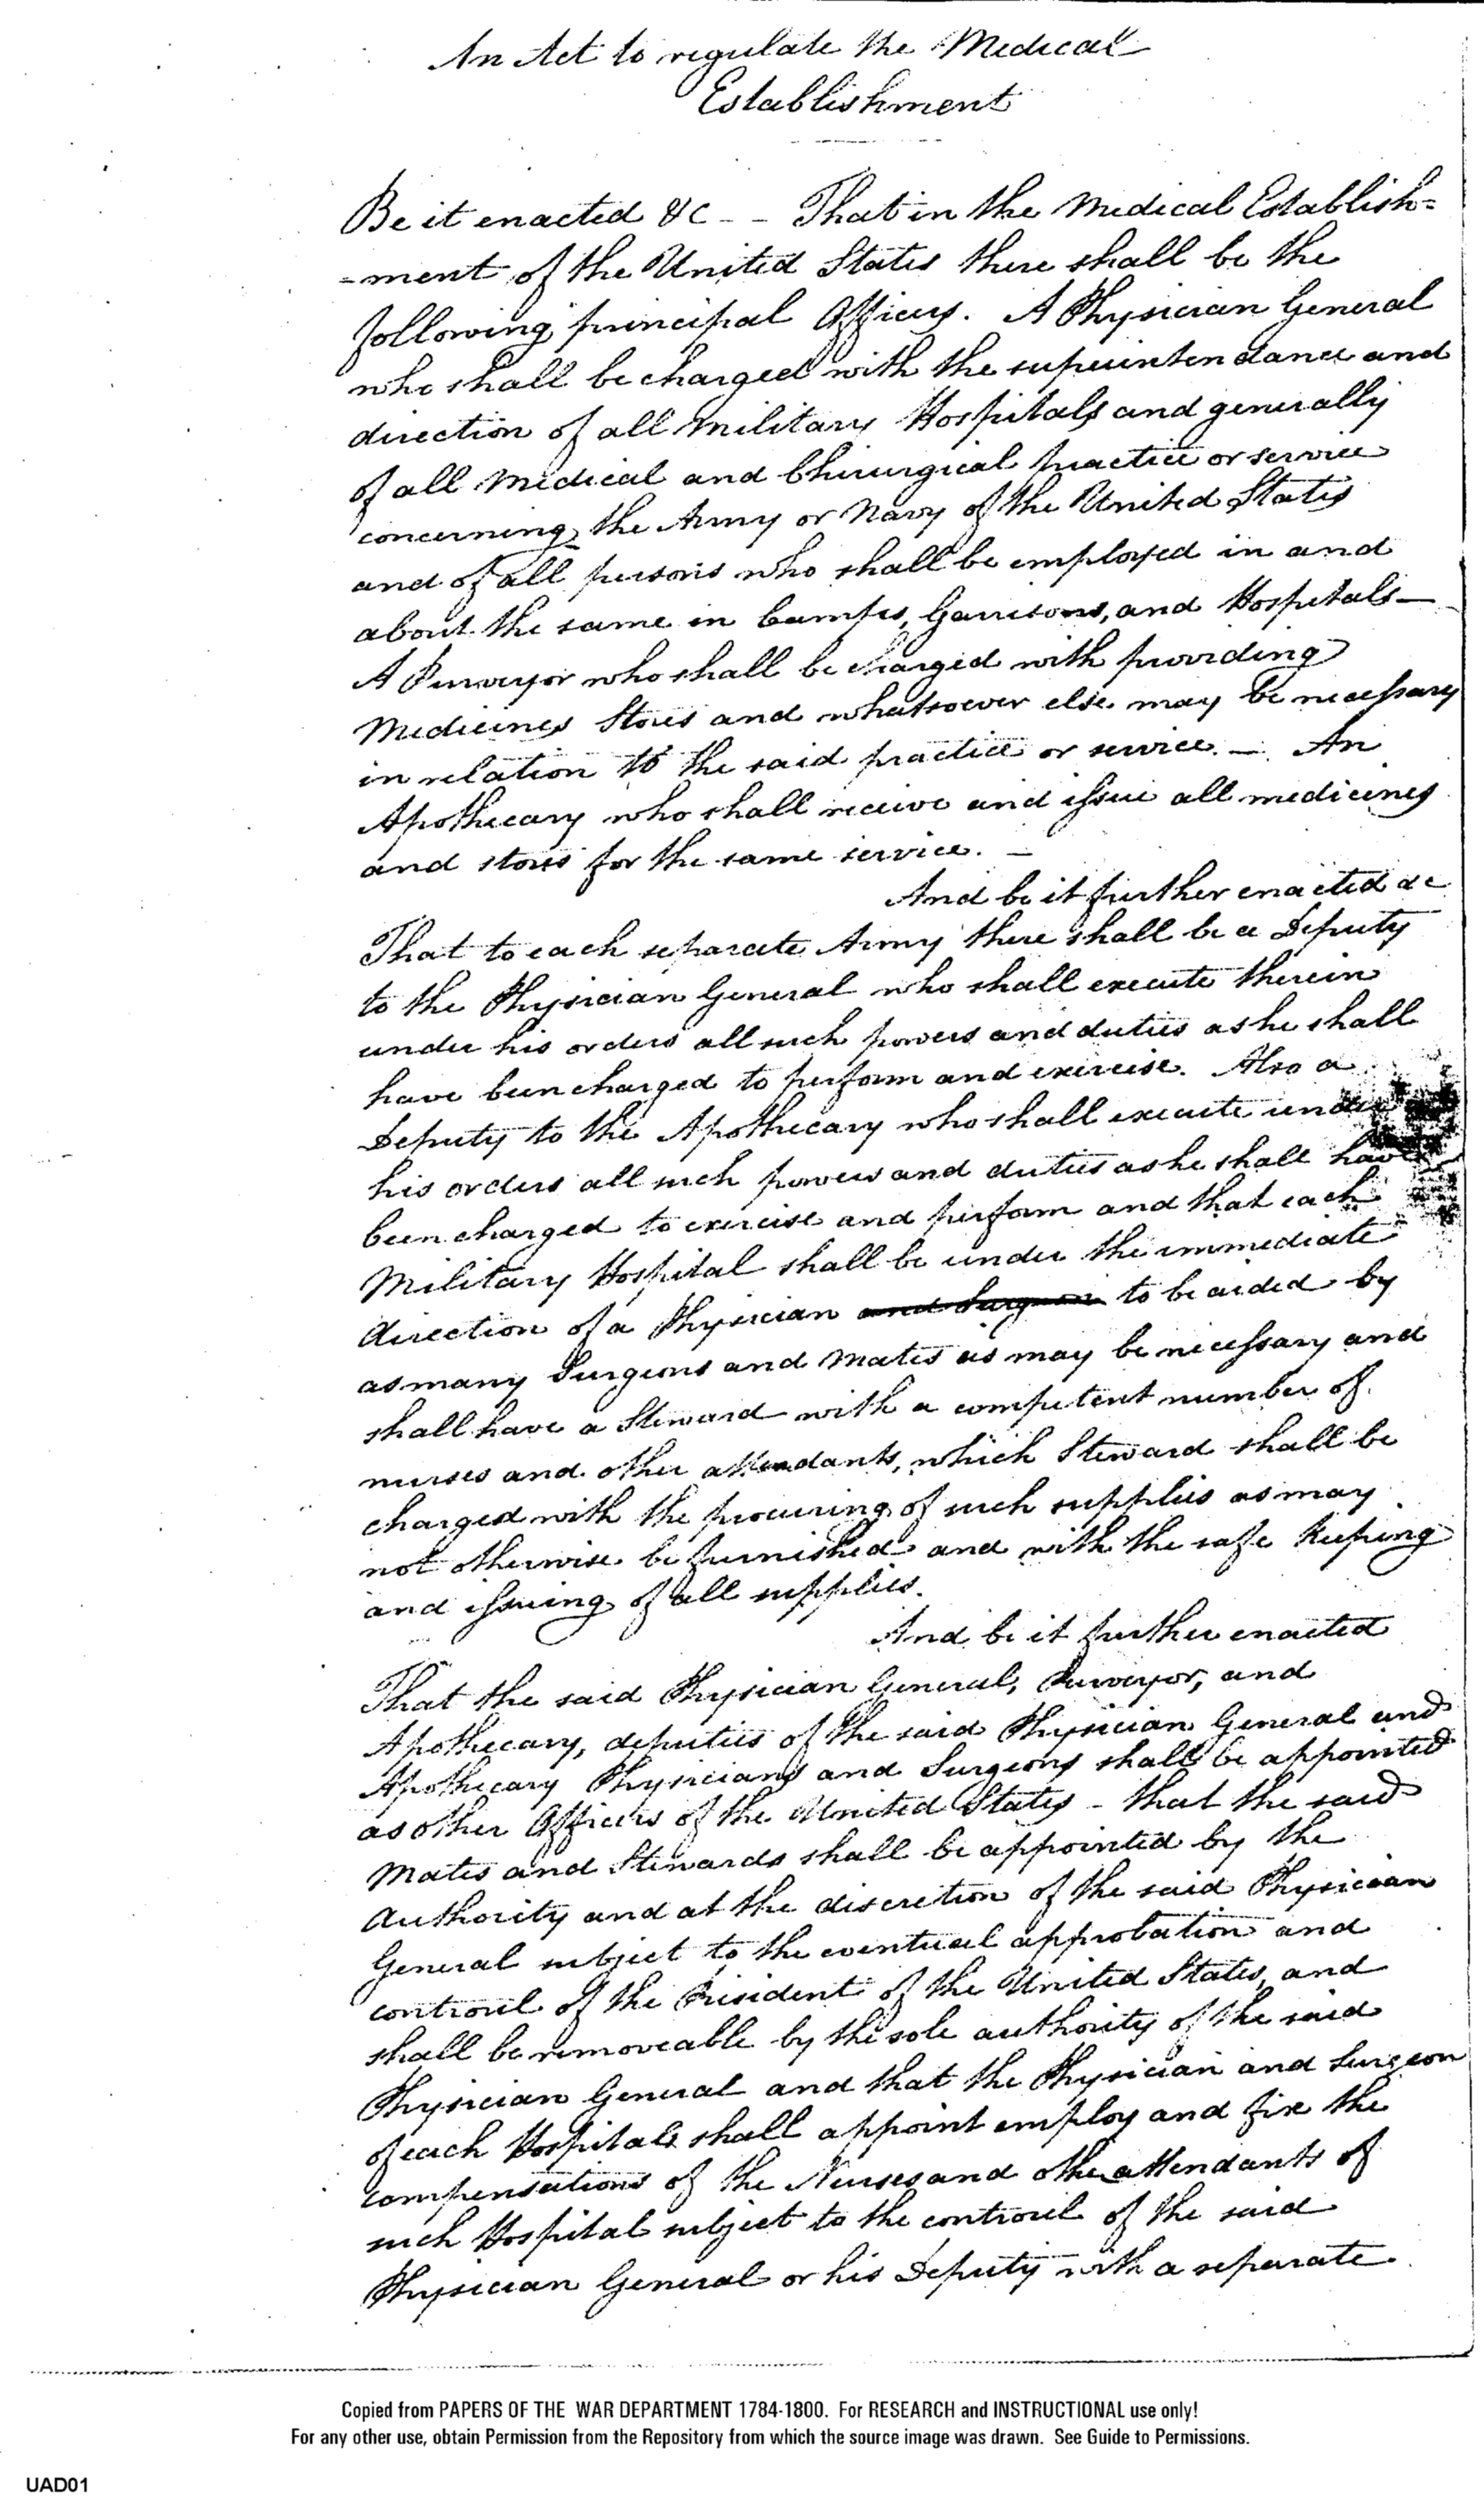 An Act to regulate the Medical
Establishment
Be it enacted &c - - That in the Medical Establish=
=ment of the United States there shall be the
following principal Officers. A Physician General
who shall be charged with the superintendance and
direction of all Military Hospitals and generally
of all Medical and Chirurgical practice or service
concerning the Army or Navy of the United States
and of all persons who shall be employed in and
about the same in Camps, Garrisons, and Hospitals —
A Purveyor who shall be charged with providing
Medicines Stores and whatsoever else may be necessary
in relation to the said practice or service. — An
Apothecary who shall receive and issue all medicines
and stores for the same service. —
And be it further enacted &c
That to each separate Army there shall be a Deputy
to the Physician General who shall execute therein
under his orders all such powers and duties as he shall
have been charged to perform and exercise. Also a
Deputy to the Apothecary who shall execute under
his orders all such powers and duties as he shall have
been charged to exercise and perform and that each
Military Hospital shall be under the immediate
direction of a Physician and Surgeon to be aided by
as many Surgeons and Mates as may be necessary and
shall have a Steward with a competent number of
nurses and other attendants, which Steward shall be
charged with the procuring of such supplies as may
not otherwise be furnished and with the safe keeping
and issuing of all supplies.
And be it further enacted
That the said Physician General, Purveyor, and
Apothecary, deputies of the said Physician General and
Apothecary Physicians and Surgeons shall be appointed
as other Officers of the United States - that the said
Mates and Stewards shall be appointed by the
Authority and at the discretion of the said Physician
General subject to the eventual approbation and
controul of the President of the United States, and
shall be removeable by the sole authority of the said
Physician General and that the Physician and Surgeon
of each Hospitals shall appoint employ and fix the
compensations of the Nurses and other attendants of
such Hospital subject to the controul of the said
Physician General or his Deputy with a separate
Copied from PAPERS OF THE WAR DEPARTMENT 1784-1800. For RESEARCH and INSTRUCTIONAL use only!
For any other use, obtain Permission from the Repository from which the source image was drawn. See Guide to Permissions.
UAD01